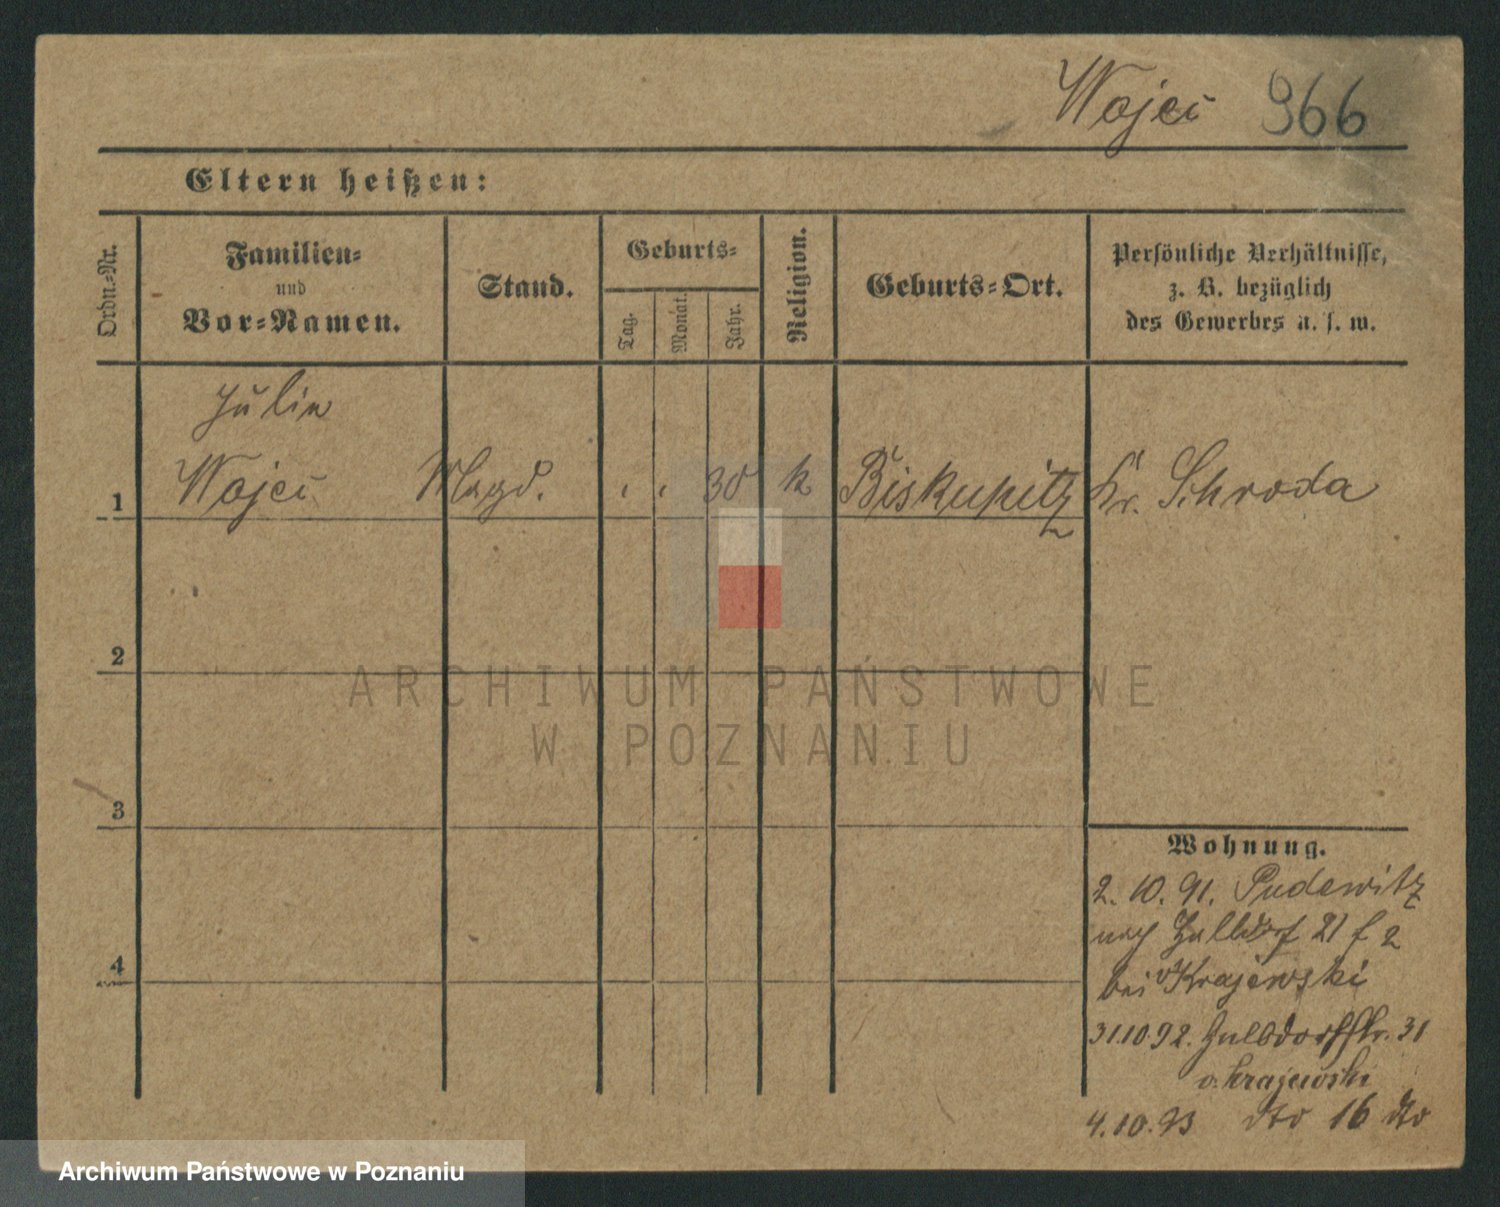 Wojci 966
Eltern heißen:
Ordn.-Nr.
Familien-
und
Vor-Namen.
Stand.
Geburts-
Tag.
Monat.
Jahr.
Religion.
Geburts-Ort.
Persönliche Verhältnisse,
z. B. bezüglich
des Gewerbes u. s. w.
Julie
1 Wojci Magd. 30 k Biskupitz Kr. Schroda
2
3
4
ARCHIWUM PAŃSTWOWE
W POZNANIU
Wohnung.
2. 10. 91. Pudewitz
nach Halbdorf 21 f 2
bei v Krajewski
31.10.92. Halbdorfstr. 31
v. Krajewski
4.10.93 dto 16 dto
Archiwum Państwowe w Poznaniu